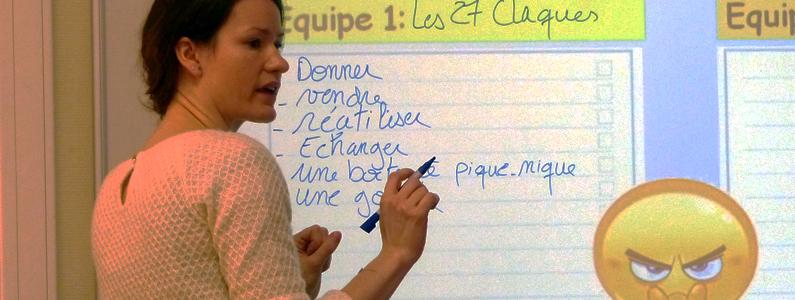 Equipe 1: Les 27 Claques
Equip
Donner
- vendre
- réutiliser
- Echanger
une pique-nique
une go